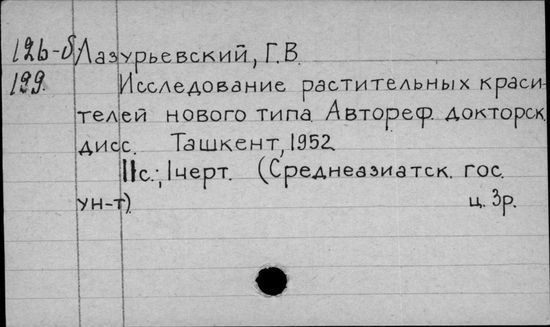 126-б Лазурьевский, Г.В.
199. Исследование растительных краси-
телей нового типа. Автореф. докторск.
дисс. Ташкент, 1952
11с.; 1черт. (Среднеазиатск. гос.
ун-т) ц. 3р.